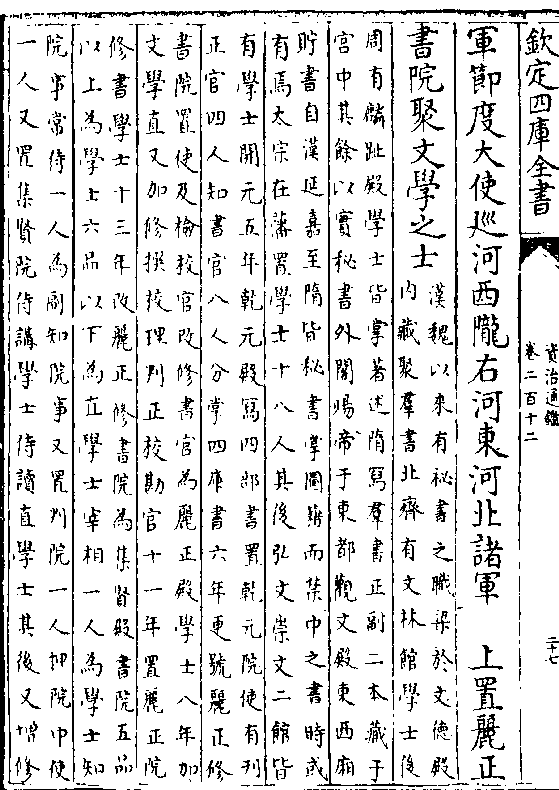 欽定四庫全書
資治通鑑
卷二百十二
二十七
軍節度大使廵河西隴右河東河北諸軍　上置麗正
書院聚文學之士
漢魏以來有祕書之職梁於文德殿
内藏聚羣書北齊有文林館學士後
周有麟趾殿學士皆掌著述隋寫羣書正副二本藏于
宫中其餘以實秘書外閣煬帝于東都觀文殿東西廂
貯書自漢延嘉至隋皆秘書掌圖籍而禁中之書時或
有焉太宗在藩置學士十八人其後弘文崇文二館皆
有學士開元五年乾元殿寫四部書置乾元院使有刋
正官四人知書官八人分掌四庫書六年更號麗正修
書院置使及檢校官改修書官為麗正殿學士八年加
文學直又加修撰校理刋正校勘官十一年置麗正院
修書學士十三年改麗正修書院為集賢殿書院五品
以上為學士六品以下為直學士宰相一人為學士知
院事常侍一人為副知院事又置判院一人押院中使
一人又置集賢院侍講學士侍讀直學士其後又增修